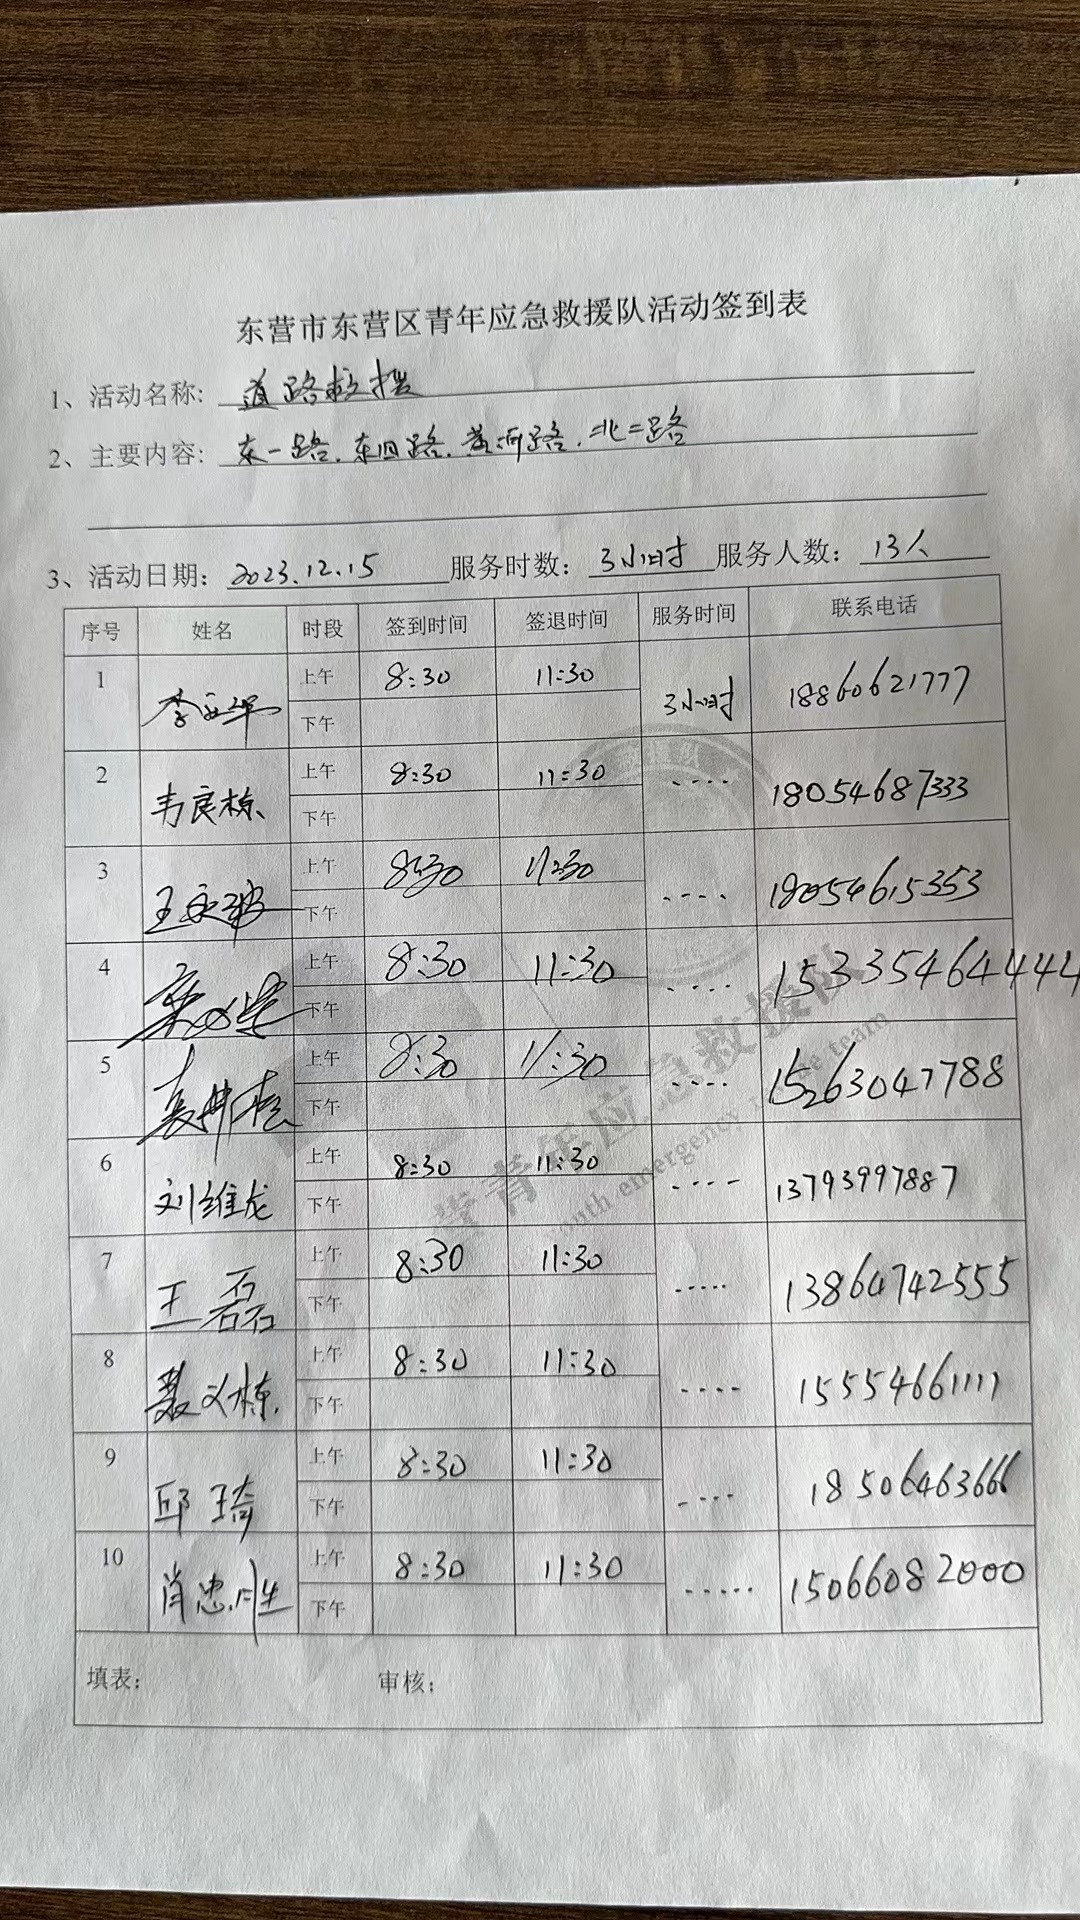 东营市东营区青年应急救援队活动签到表
1、活动名称: 道路救援
2、主要内容: 东一路.东四路.黄河路.北二路
3、活动日期: 2023.12.15 服务时数: 3小时 服务人数: 13人
序号 姓名 时段 签到时间 签退时间 服务时间 联系电话
1 上午 8:30 11:30 3小时 18860621777
下午
2 韦良栋 上午 8:30 11:30 .... 18054687333
下午
3 上午 8:30 11:30 .... 18054615353
下午
4 上午 8:30 11:30 .... 15335464444
下午
5 上午 8:30 11:30 .... 15263047788
下午
6 刘维龙 上午 8:30 11:30 .... 13793997887
下午
7 王磊 上午 8:30 11:30 ..... 13864742555
下午
8 聂义栋 上午 8:30 11:30 .... 15554661111
下午
9 邱琦 上午 8:30 11:30 .... 18506463666
下午
10 肖忠胜 上午 8:30 11:30 ..... 15066082000
下午
填表: 审核:
青年应急救援队
youth emergency team